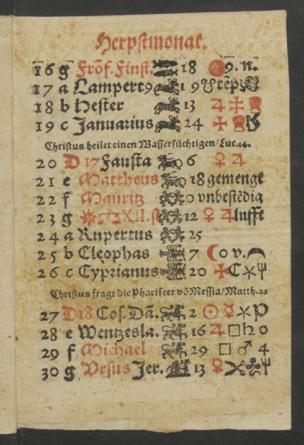 Herpstmonat.
16 g Frôf. Finst. 18 9. n.
17 a Lampert9 19
18 b Hester 13 ♃
19 c Januarius 24 ♃
Christus heilet einen Wassersüchtigen / Luc. 14.
20 D 17 Fausta 6 ♀ ♃
21 e Mattheus 18 gemenge
22 f Mauritz 0 vnbestëdig
23 g 12 ♀ ♃ lufft
24 a Rupertus 25
25 b Cleophas 7 0 v.
26 c Cyprianus 20 C
Christus fragt die Phariseer võ Messia / Matth. 22
27 D 18 Cos. Dã. 2 ☉ ☿ P
28 e Wentzesla. 16 ♃ □ ♄ 20
29 f Michael 29 □ ♂ 4
30 g Vrsus Jer. 13 ♀